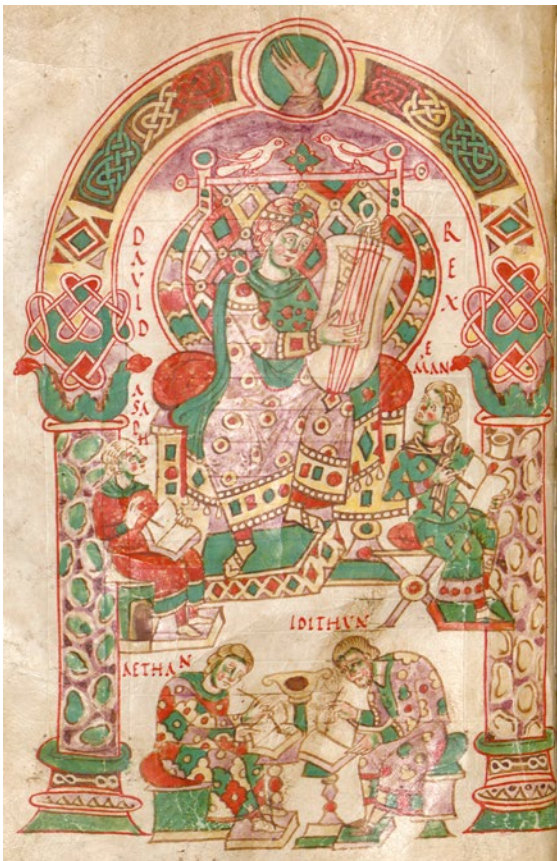 DAVID
REX
EMAN
ASAPH
IDITHUN
AETHAN